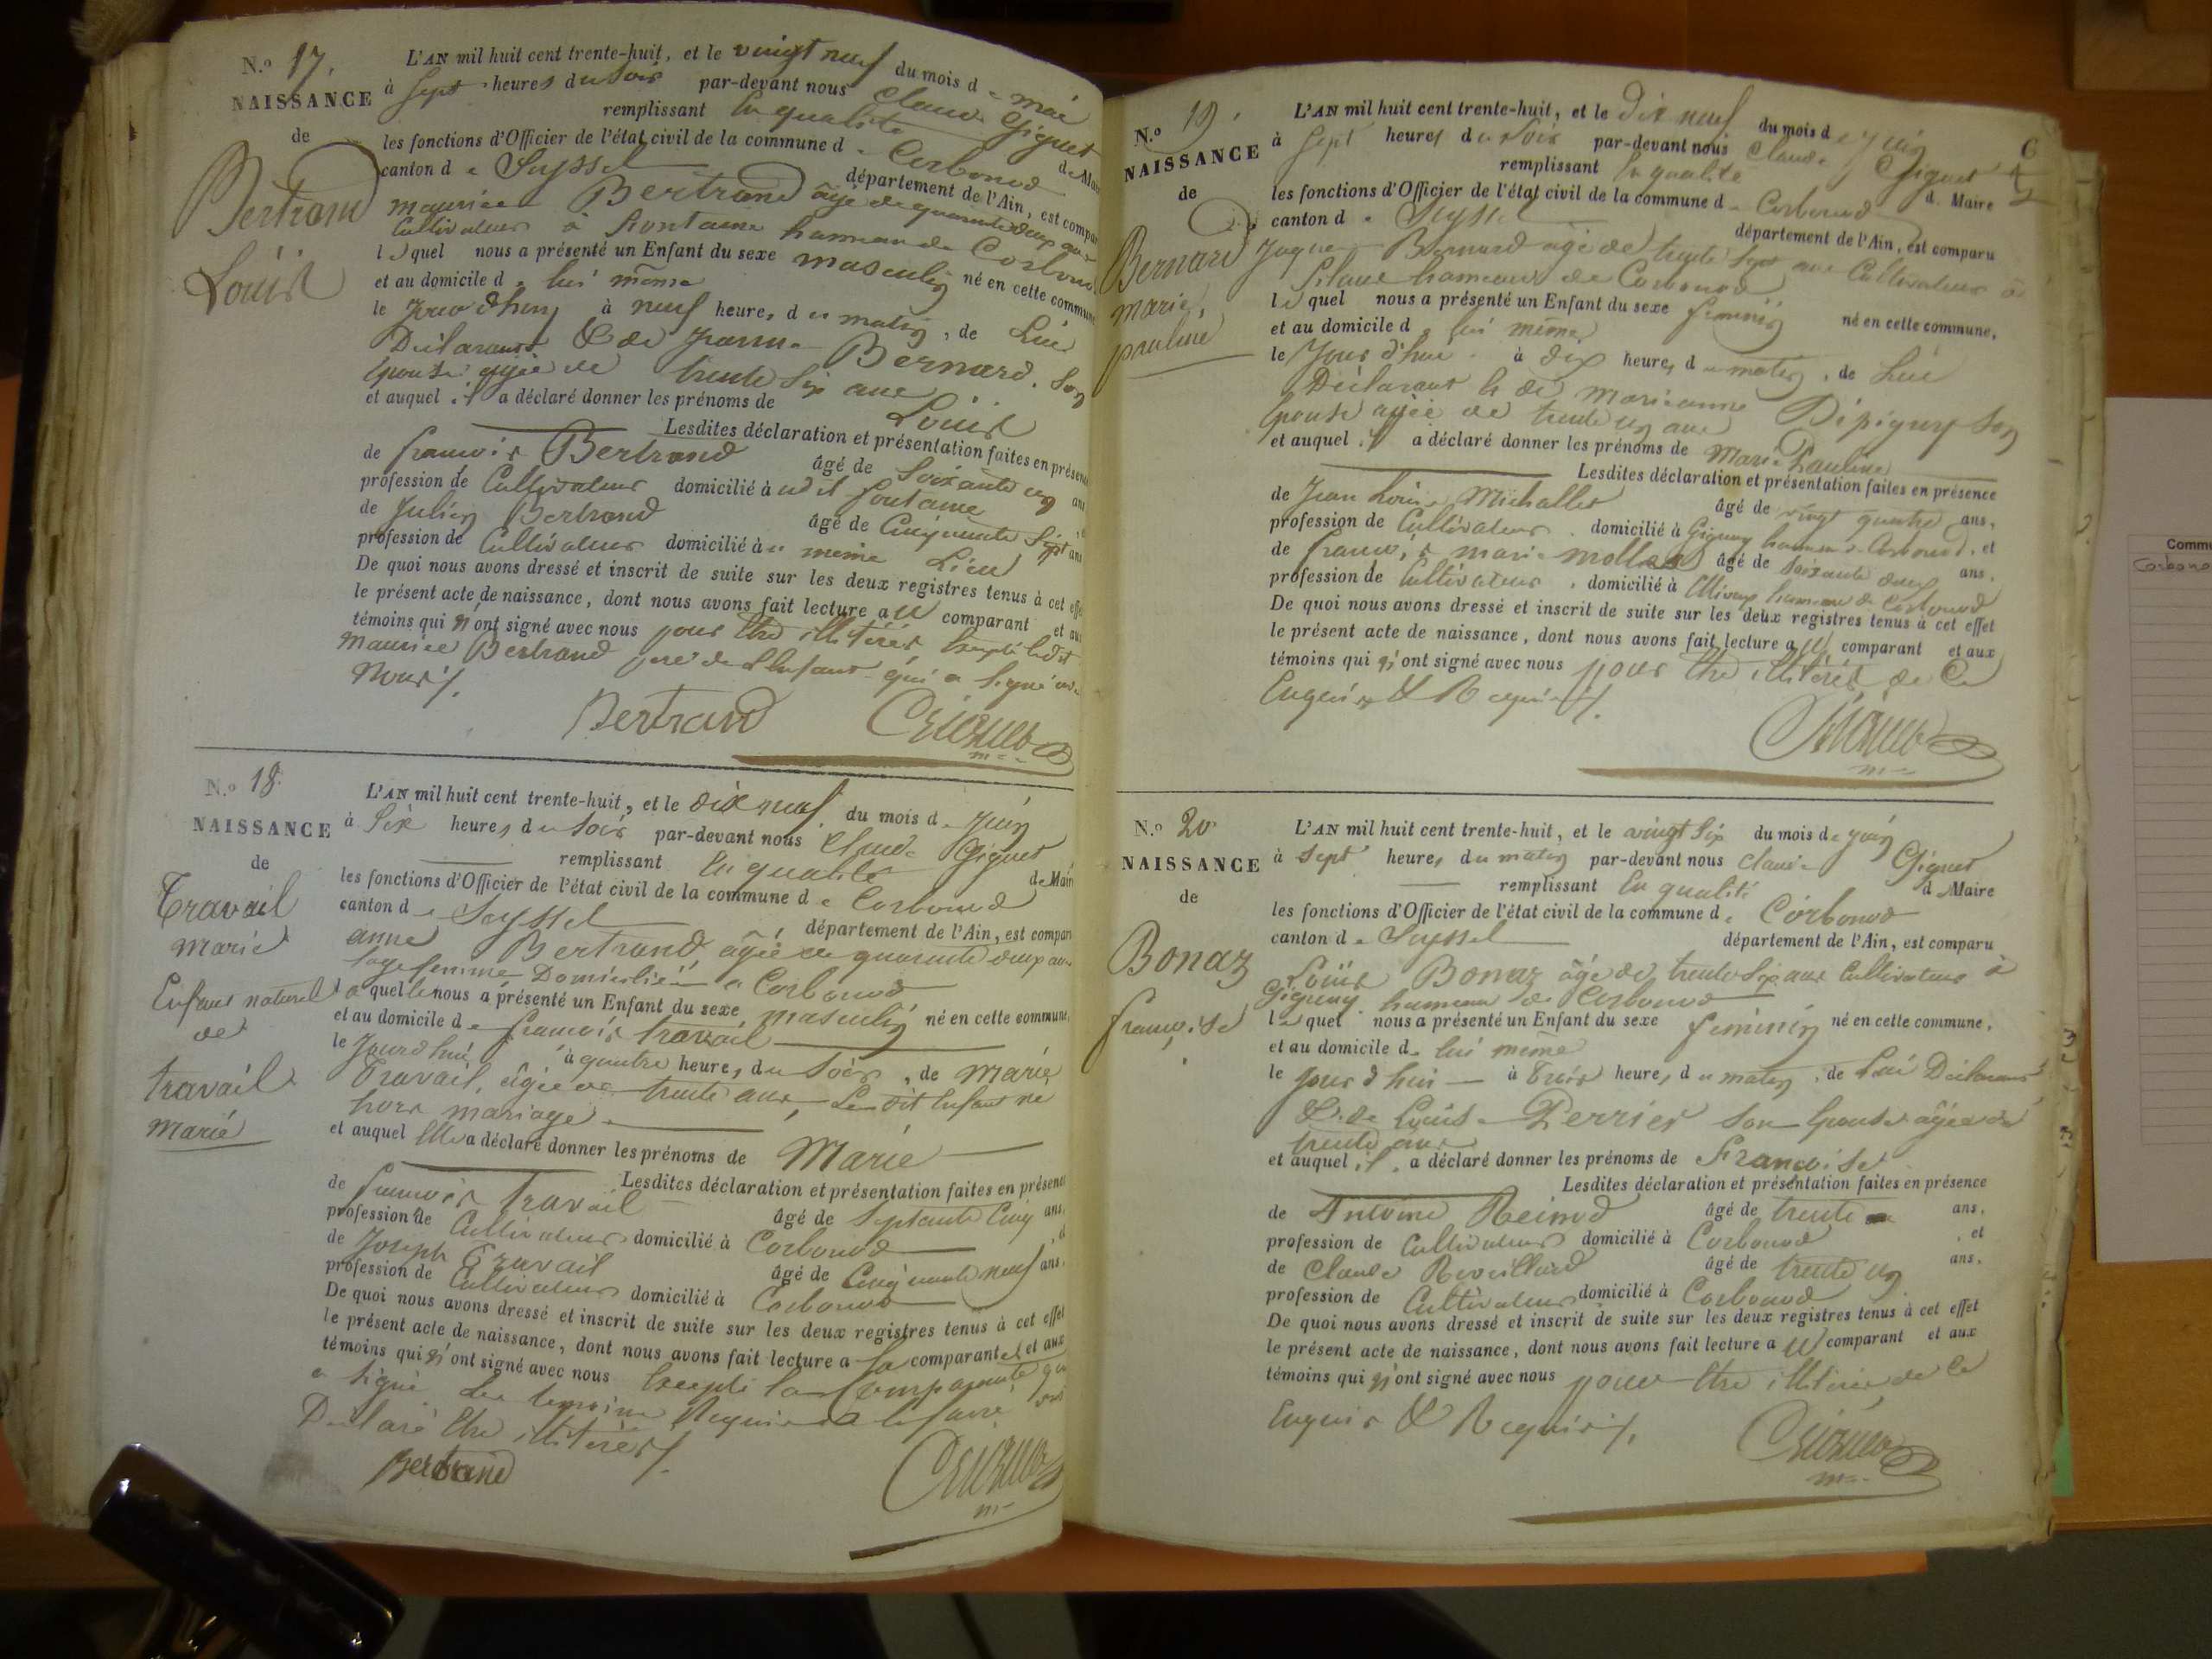 N.o 17.
NAISSANCE
de
Bertrand
Louis
L'AN mil huit cent trente-huit, et le vingt neuf du mois de mai
à Sept heures du Soir par-devant nous Claude Giguet
remplissant En qualité de Mair
les fonctions d'Officier de l'état civil de la commune de Corbonod
canton de Seyssel département de l'Ain, est compar
maurice Bertrand âgé de quarante deux ans
Cultivateur à fontaine hameau de Corbonod
lequel nous a présenté un Enfant du sexe masculin né en cette commune
et au domicile de lui même
le Jourdhuy à neuf heures du matin, de Lui
Déclarant & de Jeanne Bernard. Son
Epouse agée de trente Six ans
et auquel il a déclaré donner les prénoms de Louis
Lesdites déclaration et présentation faites en présence
de francois Bertrand âgé de Soixante un ans
profession de Cultivateur domicilié à udit fontaine
de Julien Bertrand âgé de Cinquante Sept ans
profession de Cultivateur domicilié à u meme Lieu
De quoi nous avons dressé et inscrit de suite sur les deux registres tenus à cet effet
le présent acte de naissance, dont nous avons fait lecture au comparant et aux
témoins qui n'ont signé avec nous pour être illitérés Excepté ledit
maurice Bertrand pere de L'Enfant qui a Signé avec
Nous /.
Bertrand Giguet
m
N.o 18.
NAISSANCE
de
Travail
marie
Enfant naturel
de
travail
marie
L'AN mil huit cent trente-huit, et le dix neuf du mois de Juin
à Six heures du Soir par-devant nous Claude Giguet
remplissant En qualité de Mair
les fonctions d'Officier de l'état civil de la commune de Corbonod
canton de Seyssel département de l'Ain, est compar
anne Bertrand âgée de quarante deux ans
Sage femme Domiciliée a Corbonod
laquelle nous a présenté un Enfant du sexe masculin né en cette commune,
et au domicile de francois travail
le Jourdhui à quatre heures du Soir, de marie
Travail, agée de trente ans, Le dit Enfant né
hors mariage
et auquel Elle a déclaré donner les prénoms de Marie
Lesdites déclaration et présentation faites en présence
de francois Travail âgé de Septante Cinq ans,
profession de Cultivateur domicilié à Corbonod
de Joseph Travail âgé de Cinquante neuf ans.
profession de Cultivateur domicilié à Corbonod
De quoi nous avons dressé et inscrit de suite sur les deux registres tenus à cet effet
le présent acte de naissance, dont nous avons fait lecture a la comparante et aux
témoins qui n'ont signé avec nous Excepté la Comparante qui
a Signé Les temoins Requis de le faire ont
Declaré Etre illitérés /.
Bertrand Giguet
m
N.o 19.
NAISSANCE
de
Bernard
marie,
pauline
L'AN mil huit cent trente-huit, et le Dix neuf du mois de Juin
à Sept heures du Soir par-devant nous Claude Giguet
remplissant En qualité de Maire
les fonctions d'Officier de l'état civil de la commune de Corbonod
canton de Seyssel département de l'Ain, est comparu
Jaques Bernard âgé de trente Sept ans Cultivateur à
Silans hameau de Corbonod
lequel nous a présenté un Enfant du sexe féminin né en cette commune,
et au domicile de lui même
le Jour d'hui à dix heures du matin, de Lui
Déclarant & de marieanne Dépigny Son
Epouse agée de trente un ans
et auquel il a déclaré donner les prénoms de Marie Pauline
Lesdites déclaration et présentation faites en présence
de Jean Louis Michallet âgé de vingt quatre ans,
profession de Cultivateur domicilié à Gigney hameau de Corbonod, et
de francois marie mollas âgé de Soixante deux ans,
profession de Cultivateur, domicilié à hameau de Corbonod
De quoi nous avons dressé et inscrit de suite sur les deux registres tenus à cet effet
le présent acte de naissance, dont nous avons fait lecture au comparant et aux
témoins qui n'ont signé avec nous pour Etre illitérés de Ce
Enquis & Requis /.
Giguet
m
N.o 20
NAISSANCE
de
Bonaz
francoise
L'AN mil huit cent trente-huit, et le vingt Six du mois de Juin
à Sept heures du matin par-devant nous Claude Giguet
remplissant En qualité de Maire
les fonctions d'Officier de l'état civil de la commune de Corbonod
canton de Seyssel département de l'Ain, est comparu
Louis Bonaz âgé de trente Six ans Cultivateur à
Gigney hameau de Corbonod
lequel nous a présenté un Enfant du sexe féminin né en cette commune,
et au domicile de lui meme
le Jour d'hui à Trois heures du matin, de Lui Déclarant
& de Louise Perrier Son Epouse âgée de
trente ans
et auquel il a déclaré donner les prénoms de Francoise
Lesdites déclaration et présentation faites en présence
de Antoine Reimod âgé de trente ans,
profession de Cultivateur domicilié à Corbonod, et
de Claude Reveillard âgé de trente un ans,
profession de Cultivateur domicilié à Corbonod
De quoi nous avons dressé et inscrit de suite sur les deux registres tenus à cet effet
le présent acte de naissance, dont nous avons fait lecture au comparant et aux
témoins qui n'ont signé avec nous pour Etre illitérés de Ce
Enquis & Requis /.
Giguet
m
Commu
Corbono